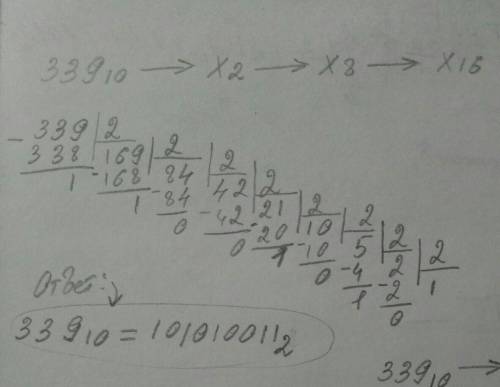 339₁₀ → X2 → X8 → X16
339 | 2
- 338 | 169 | 2
1 - 168 | 84 | 2
1 - 84 | 42 | 2
0 - 42 | 21 | 2
0 - 20 | 10 | 2
1 - 10 | 5 | 2
0 - 4 | 2 | 2
1 - 2 | 1
0
Ответ:
339₁₀ = 101010011₂
339₁₀ →